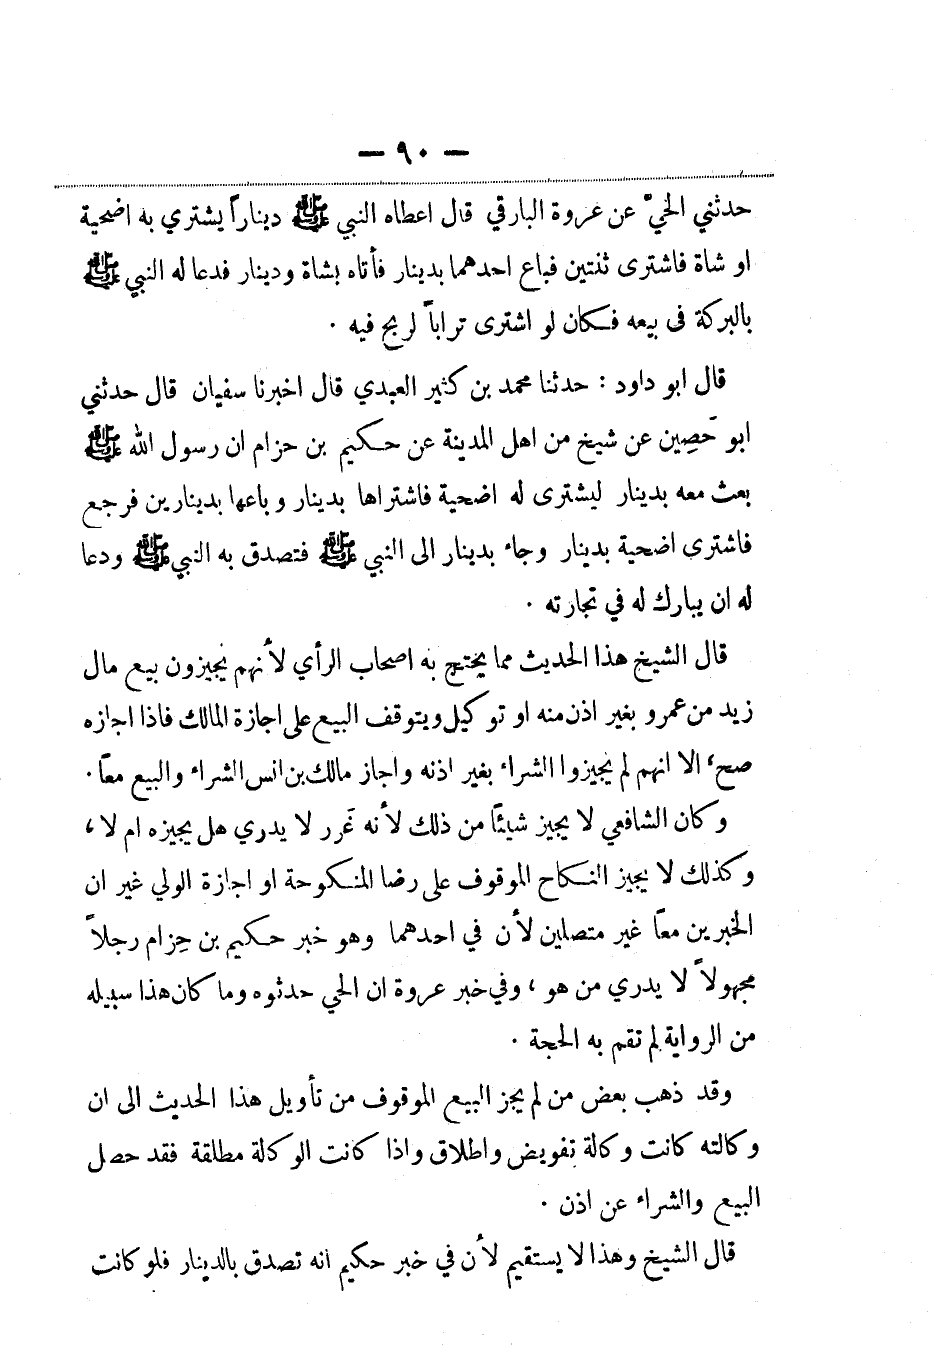 — ٩٠ —
حدثني الحيّ عن عروة البارقي قال اعطاه النبي ﷺ ديناراً يشتري به اضحية
او شاة فاشترى ثنتين فباع احدهما بدينار فأتاه بشاة ودينار فدعا له النبي ﷺ
بالبركة فى بيعه فكان لو اشترى تراباً لربح فيه ٠
قال ابو داود : حدثنا محمد بن كثير العبدي قال اخبرنا سفيان قال حدثني
ابو حَصِين عن شيخ من اهل المدينة عن حكيم بن حزام ان رسول الله ﷺ
بعث معه بدينار ليشترى له اضحية فاشتراها بدينار وباعها بدينارين فرجع
فاشترى اضحية بدينار وجاء بدينار الى النبي ﷺ فتصدق به النبي ﷺ ودعا
له ان يبارك له في تجارته ٠
قال الشيخ هذا الحديث مما يحتج به اصحاب الرأي لأنهم يجيزون بيع مال
زيد من عمرو بغير اذن منه او توكيل ويتوقف البيع على اجازة المالك فاذا اجازه
صح، الا انهم لم يجيزوا الشراء بغير اذنه واجاز مالك بن انس الشراء والبيع معًا ٠
وكان الشافعي لا يجيز شيئًا من ذلك لأنه غَرر لا يدري هل يجيزه ام لا،
وكذلك لا يجيز النكاح الموقوف على رضا المنكوحة او اجازة الولي غير ان
الخبرين معًا غير متصلين لأن في احدهما وهو خبر حكيم بن حِزام رجلاً
مجهولاً لا يدري من هو ، وفي خبر عروة ان الحي حدثوه وما كان هذا سبيله
من الرواية لم تقم به الحجة ٠
وقد ذهب بعض من لم يجز البيع الموقوف من تأويل هذا الحديث الى ان
وكالته كانت وكالة تفويض واطلاق واذا كانت الوكالة مطلقة فقد حصل
البيع والشراء عن اذن ٠
قال الشيخ وهذا لا يستقيم لأن في خبر حكيم انه تصدق بالدينار فلو كانت